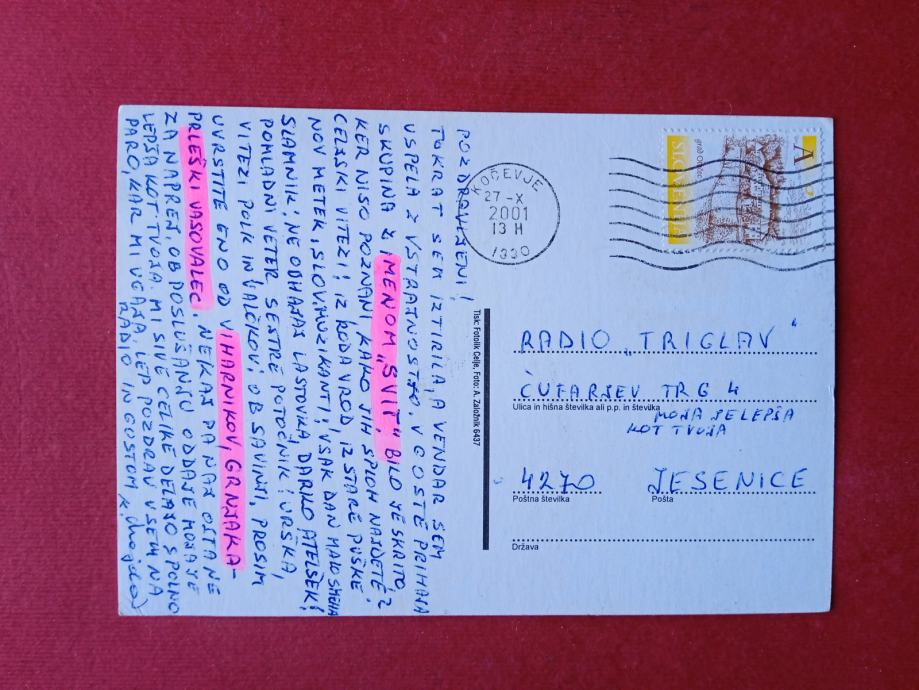 POZDRAVLJENI!
TOKRAT SEM IZTIRILA, A VENDAR SEM
USPELA Z VSTRAJNOSTJO. V GOSTE PRIHAJA
SKUPINA Z IMENOM "SVIT" BILO JE SKRITO,
KER NISO POZNANI, KAKO JIH SPLOH NAJDETE?
CELJSKI VITEZI: IZ RODA V ROD, IZ STARE PUŠKE
NOV METEK, SLOVI MUZIKANTI: VSAK DAN MALO SMEHA
SLAMNIK: NE ODHAJAJ LASTOVKA, DARKO ATELŠEK:
POMLADNI VETER, SESTRE POTOČNIK: URŠKA,
VITEZI POLK IN VALČKOV: OB SAVINJI, PROSIM
UVRSTITE ENO OD VIHARNIKOV, GRNJAKA-
PRLEŠKI VASOVALEC. NEKAJ PA NAJ OSTANE
ZA NAPREJ. OB POSLUŠANJU ODDAJE MOJA JE
LEPŠA KOT TVOJA. MI SIVE CELIKE DELAJO S POLNO
PARO, KAR MI UGAJA. LEP POZDRAV VSEM NA
RADIO IN GOSTOM.
KOČEVJE
27-X
2001
13 H
1330
A
grad
SLOVENIJA
Tisk: Fotolik Celje, Foto: A. Založnik 6437
RADIO "TRIGLAV"
ČUFARJEV TRG 4
Ulica in hišna številka ali p.p. in številka
MOJA JE LEPŠA
KOT TVOJA
4270 JESENICE
Poštna številka Pošta
Država